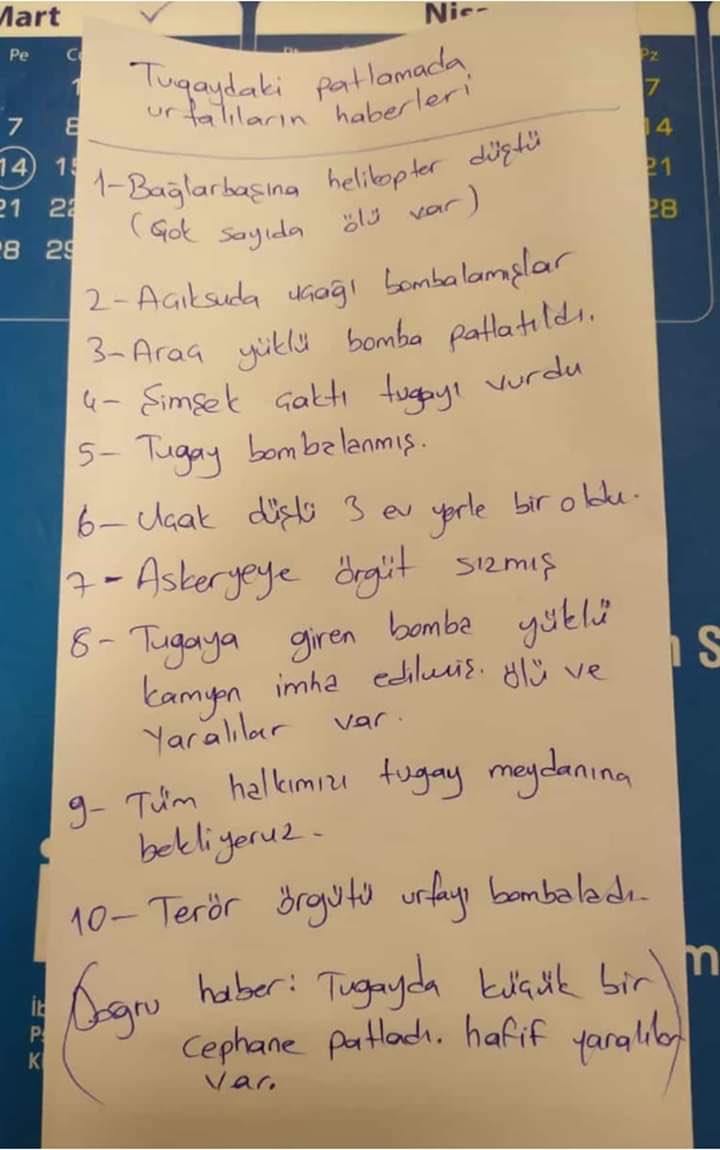 Mart
Nis
Pe
Pz
7
14
21
28
7 8
14 15
21 22
28 29
Tugaydaki patlamada
urfalıların haberleri
1-Bağlarbaşına helikopter düştü
(Çok sayıda ölü var)
2-Açıksuda uçağı bombalamışlar
3-Araç yüklü bomba patlatıldı.
4- Şimşek çaktı tugayı vurdu
5- Tugay bombalanmış.
6- Uçak düştü 3 ev yerle bir oldu.
7- Askeryeye örgüt sızmış
8- Tugaya giren bomba yüklü
kamyon imha edilmiş. ölü ve
Yaralılar var.
9- Tüm halkımızı tugay meydanına
bekliyoruz-
10- Terör örgütü urfayı bombaladı-
(Doğru haber: Tugayda küçük bir
Cephane patladı. hafif yaralılar
var.)